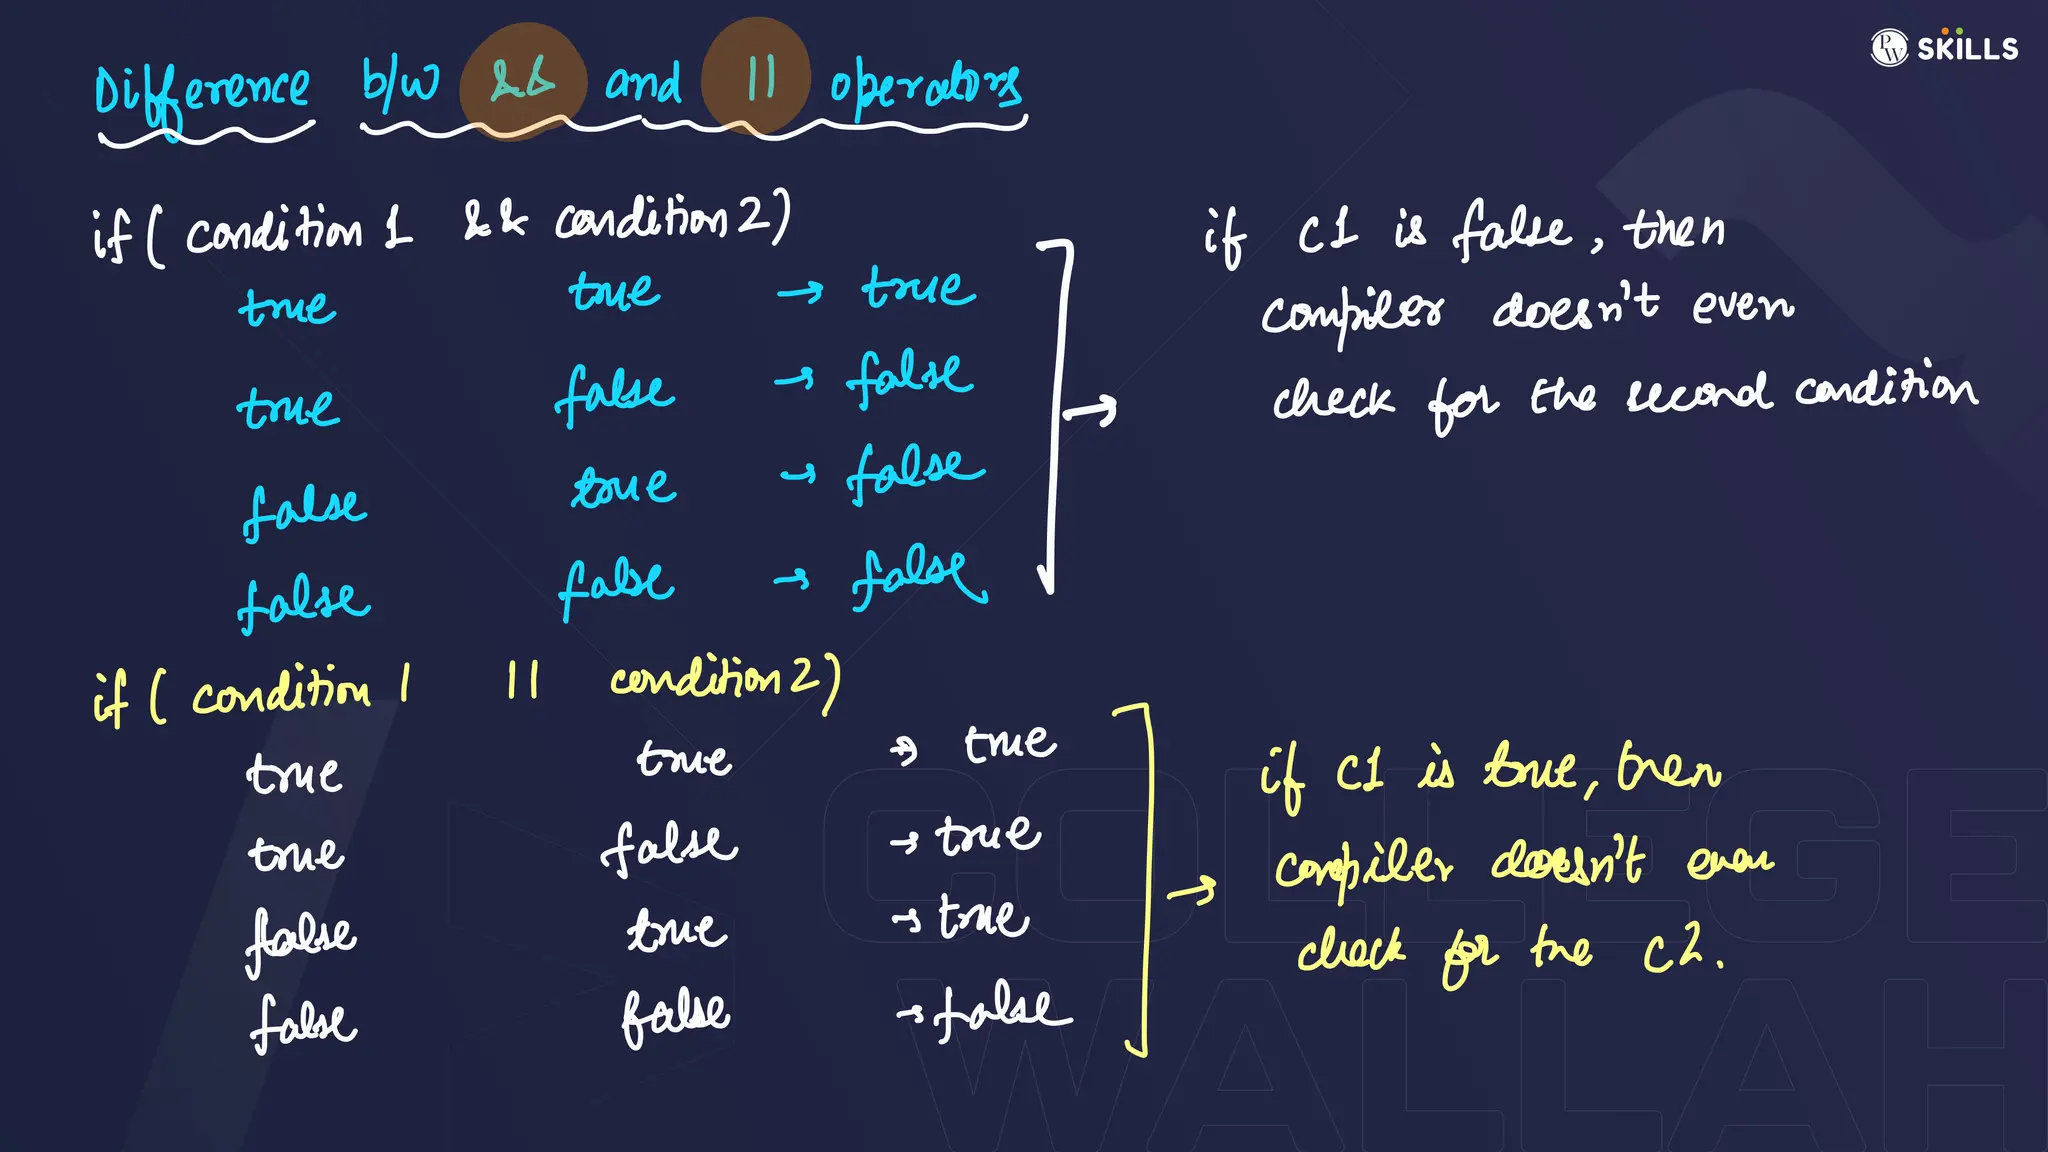 PW SKILLS
Difference b/w && and || operators
if ( condition 1 && condition 2)
true true → true
true false → false
false true → false
false false → false
if C1 is false, then
compiler doesn't even
check for the second condition
if ( condition 1 || condition 2)
true true → true
true false → true
false true → true
false false → false
if C1 is true, then
compiler doesn't even
check for the C2.
COLLEGE
WALLAH